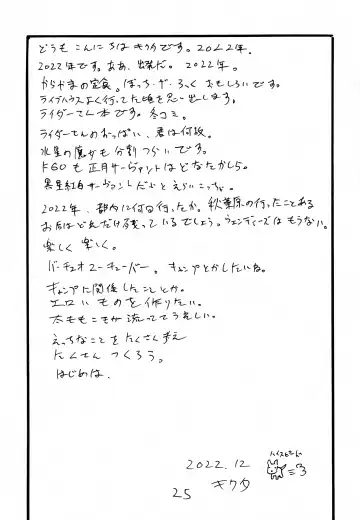 どうも こんにちは キクタです。2022年。
2022年です。ああ、出禁だ。2022年。
からやまの定食。ぼっち・ざ・ろっく おもしろいです。
ライブハウスよく行ってた頃を思い出します。
ライダーさん本です。冬コミ。
ライダーさんのおっぱい、君は何故。
水星の魔女も 分割 つらいです。
FGOも 正月サーヴァントはどなたかしら。
黒星紅白サーヴァントだと えらいこっちゃ。
2022年、都内に何回行ったか。秋葉原の行ったことある
お店はどれだけ残っているでしょう。ウェンディーズはもうない。
楽しく 楽しく。
バーチュオユーチューバー。キャンプとかしたいね。
キャンプに関係したことか。
エロいものを作りたい。
太ももこそが流っててうれしい。
えっちなことをたくさん考え
たくさん つくろう。
はじめは、
2022.12
キクタ
ハイスピード
=3
25